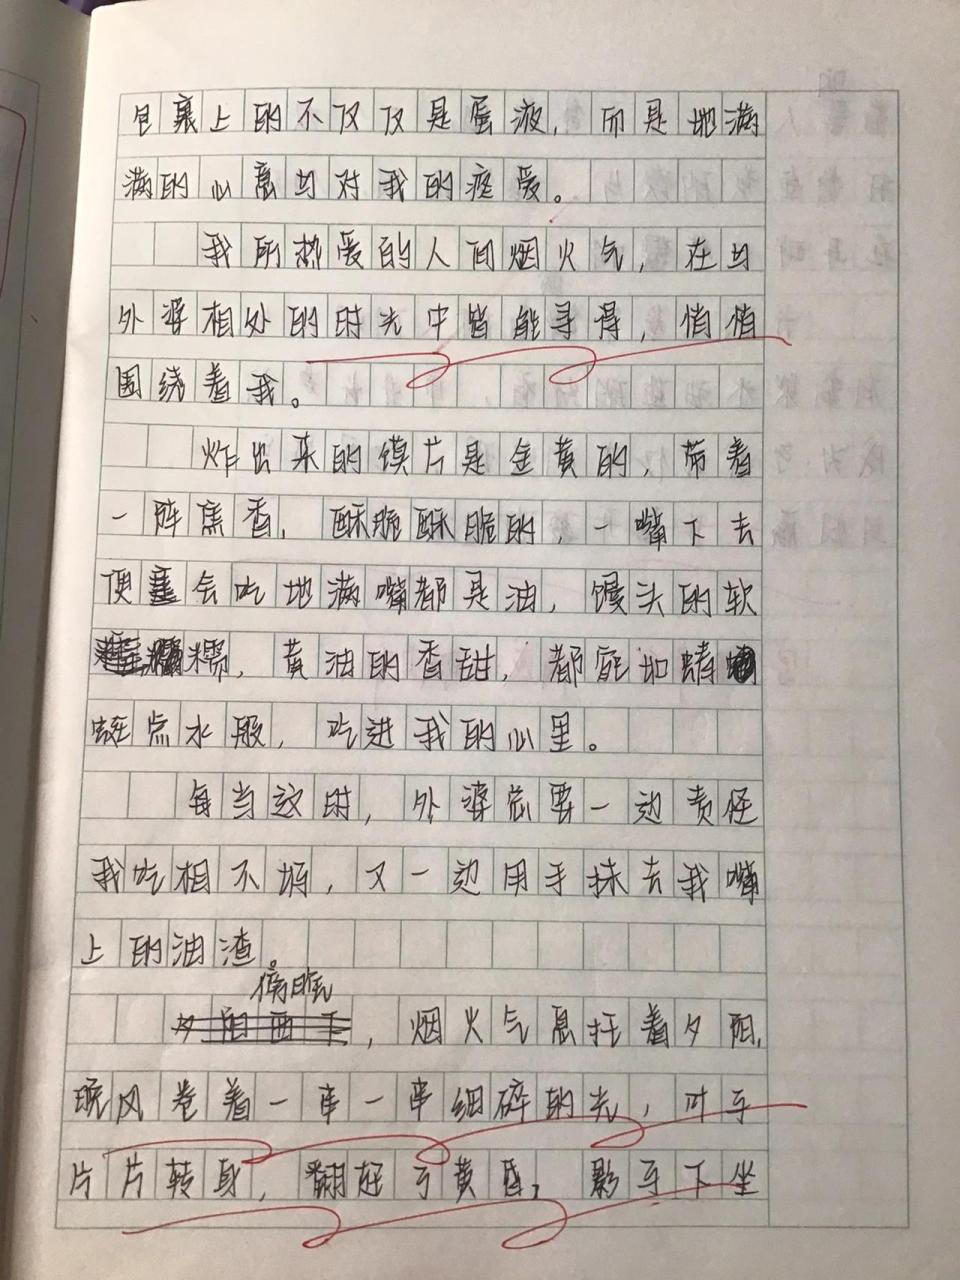 包裹上的不仅仅是蛋液，而是地满
满的心意与对我的疼爱。
我所热爱的人间烟火气，在与
外婆相处的时光中皆能寻得，悄悄
围绕着我。
炸出来的馍片是金黄的，带着
一阵焦香，酥脆酥脆的，一嘴下去
便会吃地满嘴都是油，馒头的软
糯，黄油的香甜，都能如蜻
蜓点水般，吃进我的心里。
每当这时，外婆总要一边责怪
我吃相不好，又一边用手抹去我嘴
上的油渣。
傍晚
夕阳西下，烟火气息托着夕阳，
晚风卷着一串一串细碎的光，叶子
片片转身，翻红了黄昏，影子下坐